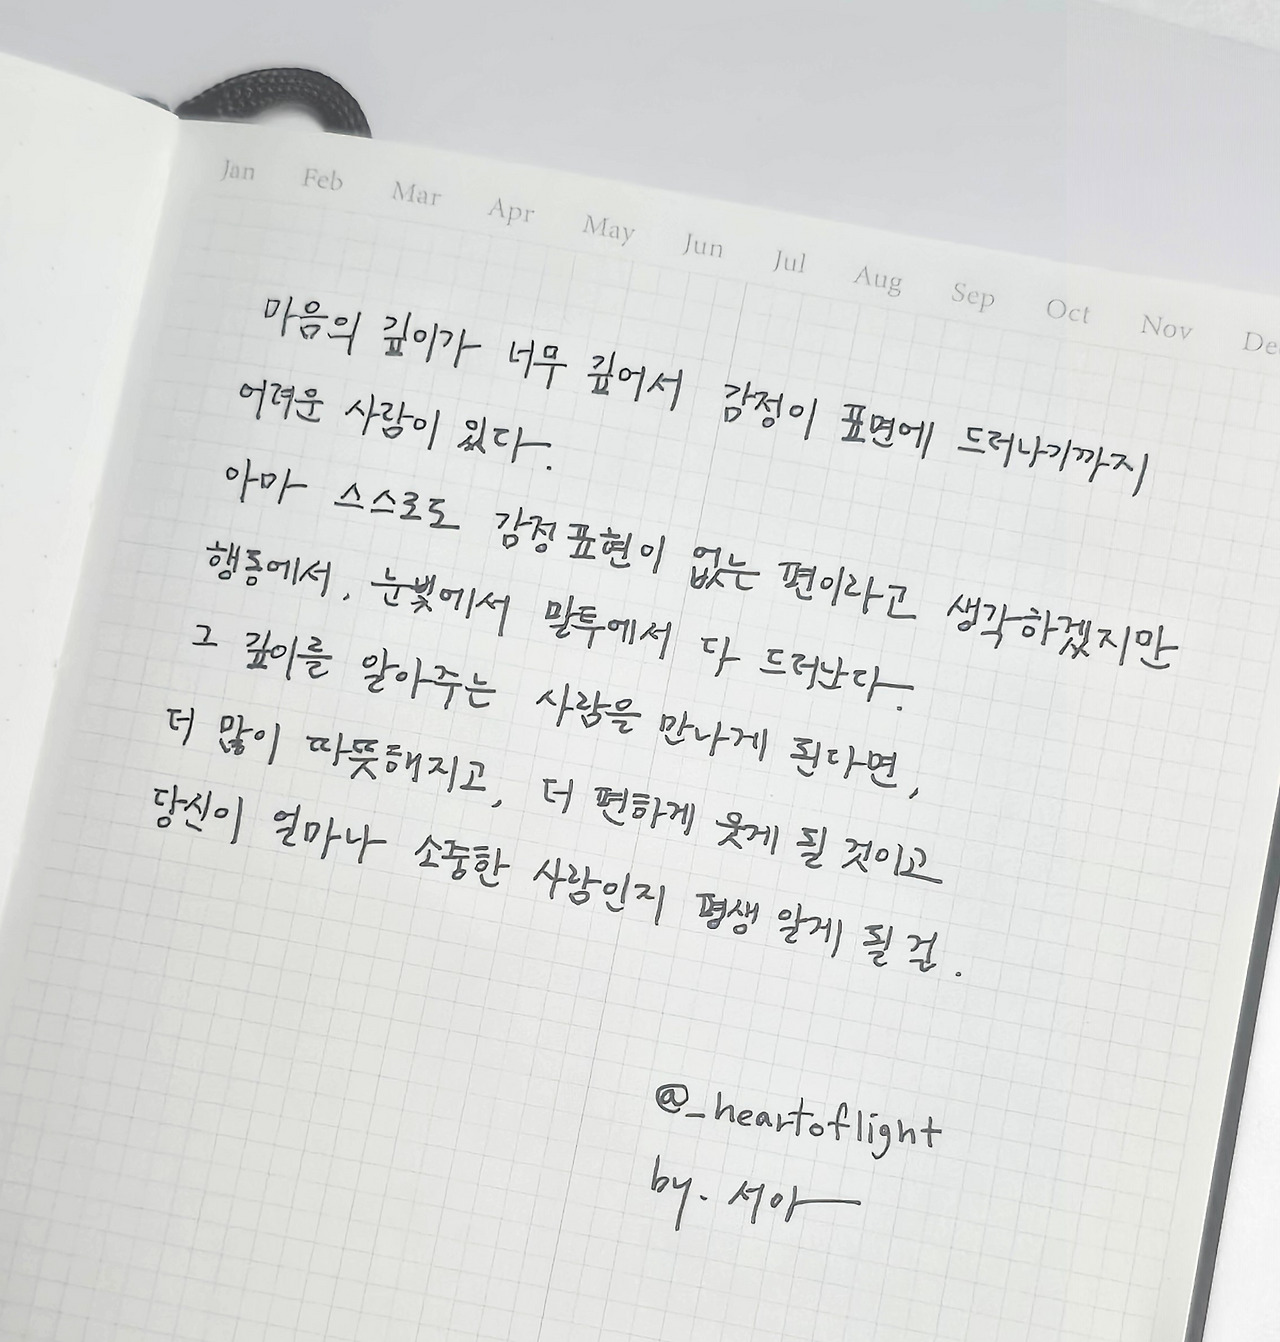 Jan Feb Mar Apr May Jun Jul Aug Sep Oct Nov De
마음의 깊이가 너무 깊어서 감정이 표면에 드러나기까지
어려운 사람이 있다.
아마 스스로도 감정표현이 없는 편이라고 생각하겠지만
행동에서, 눈빛에서 말투에서 다 드러난다.
그 깊이를 알아주는 사람을 만나게 된다면,
더 많이 따뜻해지고, 더 편하게 웃게 될 것이고
당신이 얼마나 소중한 사람인지 평생 알게 될 건.
@_heartoflight
by. 서아